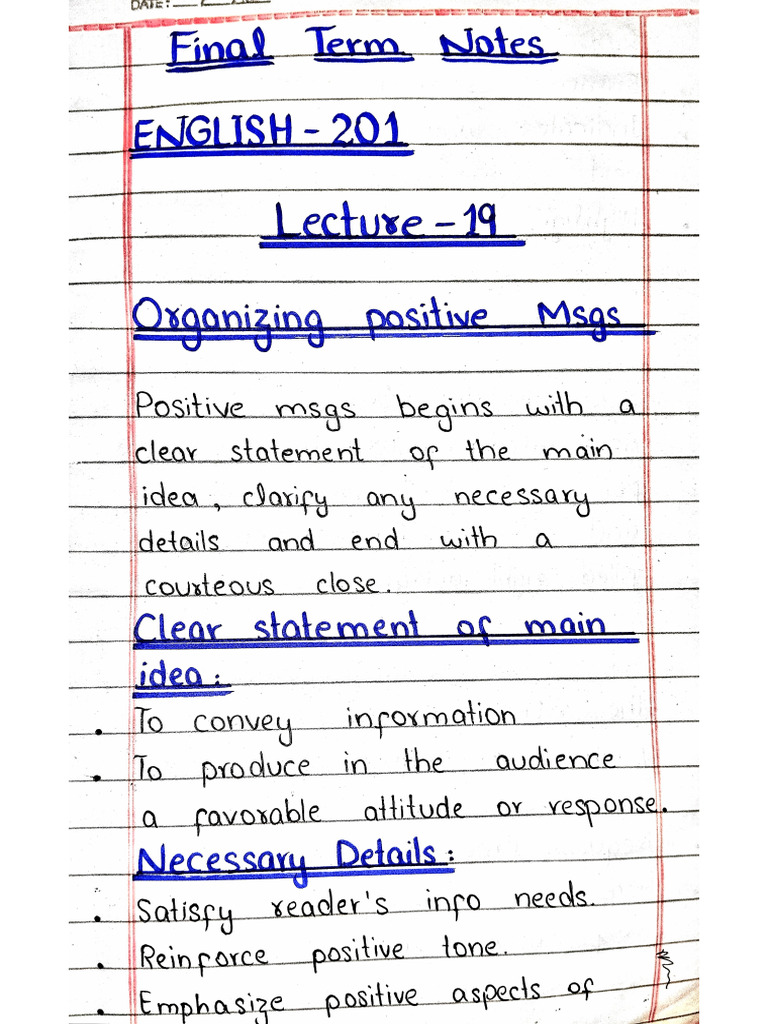 DATE:
Final Term Notes
ENGLISH - 201
Lecture - 19
Organizing positive Msgs
Positive msgs begins with a
clear statement of the main
idea, clarify any necessary
details and end with a
courteous close.
Clear statement of main
idea:
• To convey information
• To produce in the audience
a favorable attitude or response.
Necessary Details:
• Satisfy reader's info needs.
• Reinforce positive tone.
• Emphasize positive aspects of